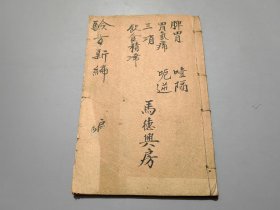 脾胃 噎隔
胃氣痛 呃逆
三消
飲食積滯
馬德興房
驗方新編